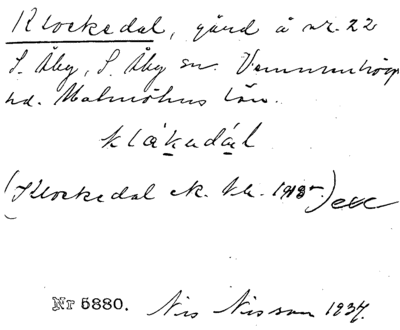 Klockedal, gård å nr. 22
S. Åby, S. Åby sn. Vemmenhögs
hd. Malmöhus län.
klåkadál
(Klockedal ek. bl. 1915)
Nr 5880. Nis Nisson 1937.